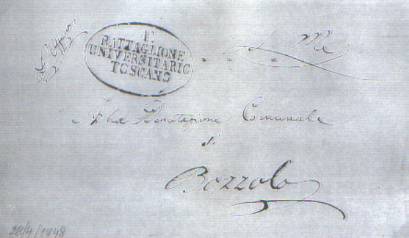 1º
BATTAGLIONE
UNIVERSITARIO
TOSCANO
Alla Deputazione Comunale
di
Bozzolo
28/4/1848